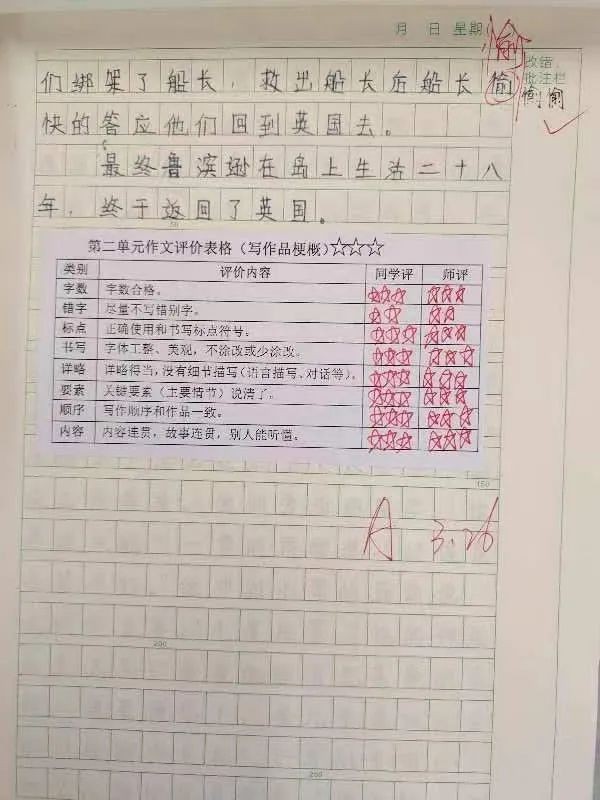 月 日 星期
愉
改错、
批注栏
们绑架了船长，救出船长后船长偷
愉愉
快的答应他们回到英国去。
最终鲁滨逊在岛上生活二十八
年，终于返回了英国。
50
第二单元作文评价表格（写作品梗概）☆☆☆
类别 评价内容 同学评 师评
字数 字数合格。 ☆☆☆ ☆☆☆
错字 尽量不写错别字。 ☆☆ ☆☆
标点 正确使用和书写标点符号。 ☆☆☆ ☆☆☆
书写 字体工整、美观，不涂改或少涂改。 ☆☆☆ ☆☆☆
详略 详略得当，没有细节描写（语言描写、对话等）。 ☆☆☆ ☆☆☆
要素 关键要素（主要情节）说清了。 ☆☆☆ ☆☆☆
顺序 写作顺序和作品一致。 ☆☆☆ ☆☆☆
内容 内容连贯，故事连贯，别人能听懂。 ☆☆☆ ☆☆☆
150
A 3.26
200
250